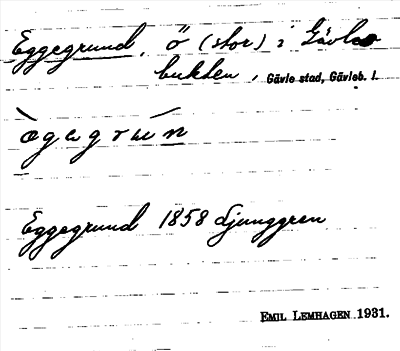 Eggegrund, ö (stor) i Gävle
bukten, Gävle stad, Gävleb. l.
ògagrún
Eggegrund 1858 Ljunggren
EMIL LEMHAGEN 1931.